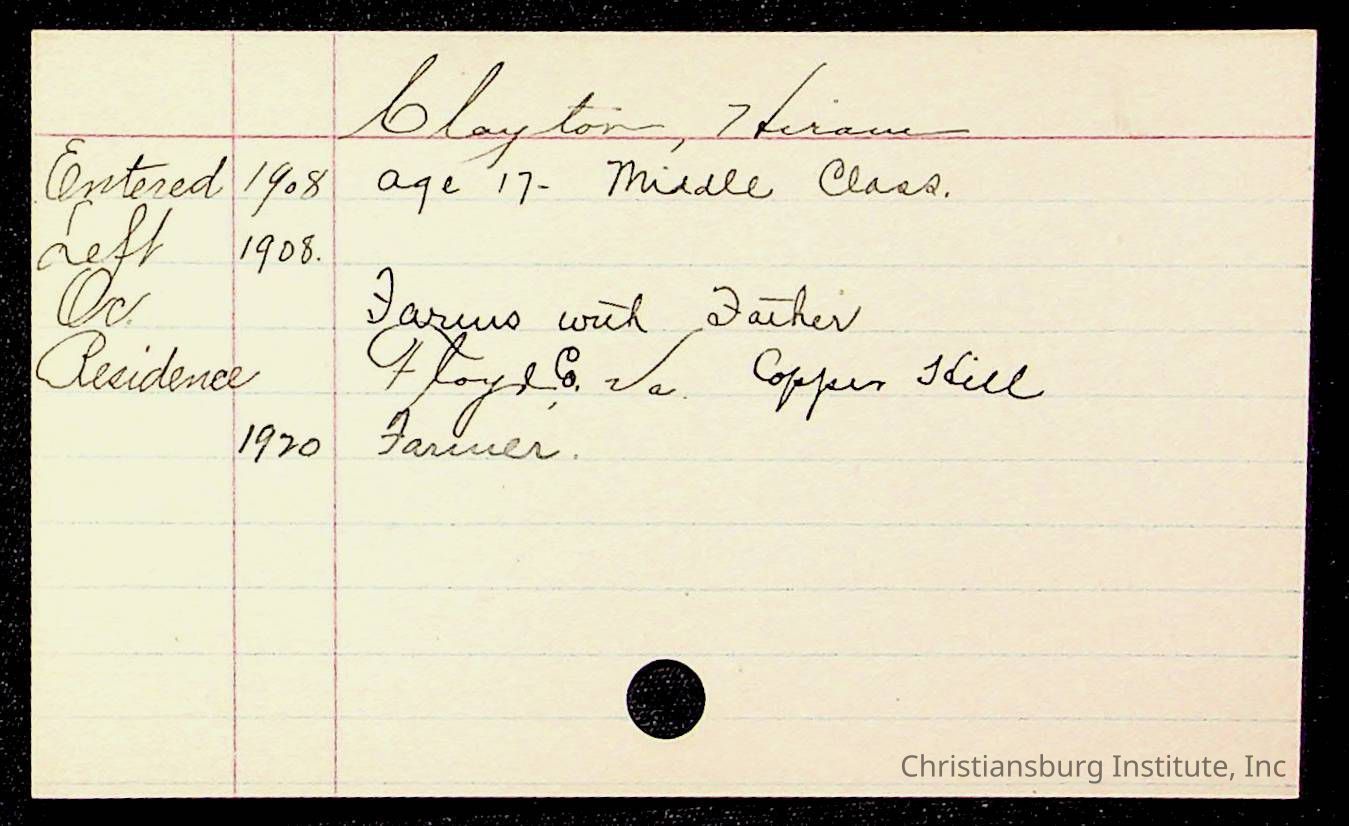 Clayton, Hiram
Entered 1908 age 17- Middle Class.
Left 1908.
Oc. Farms with Father
Residence Floyd Co. Va. Copper Hill
1920 Farmer.
Christiansburg Institute, Inc